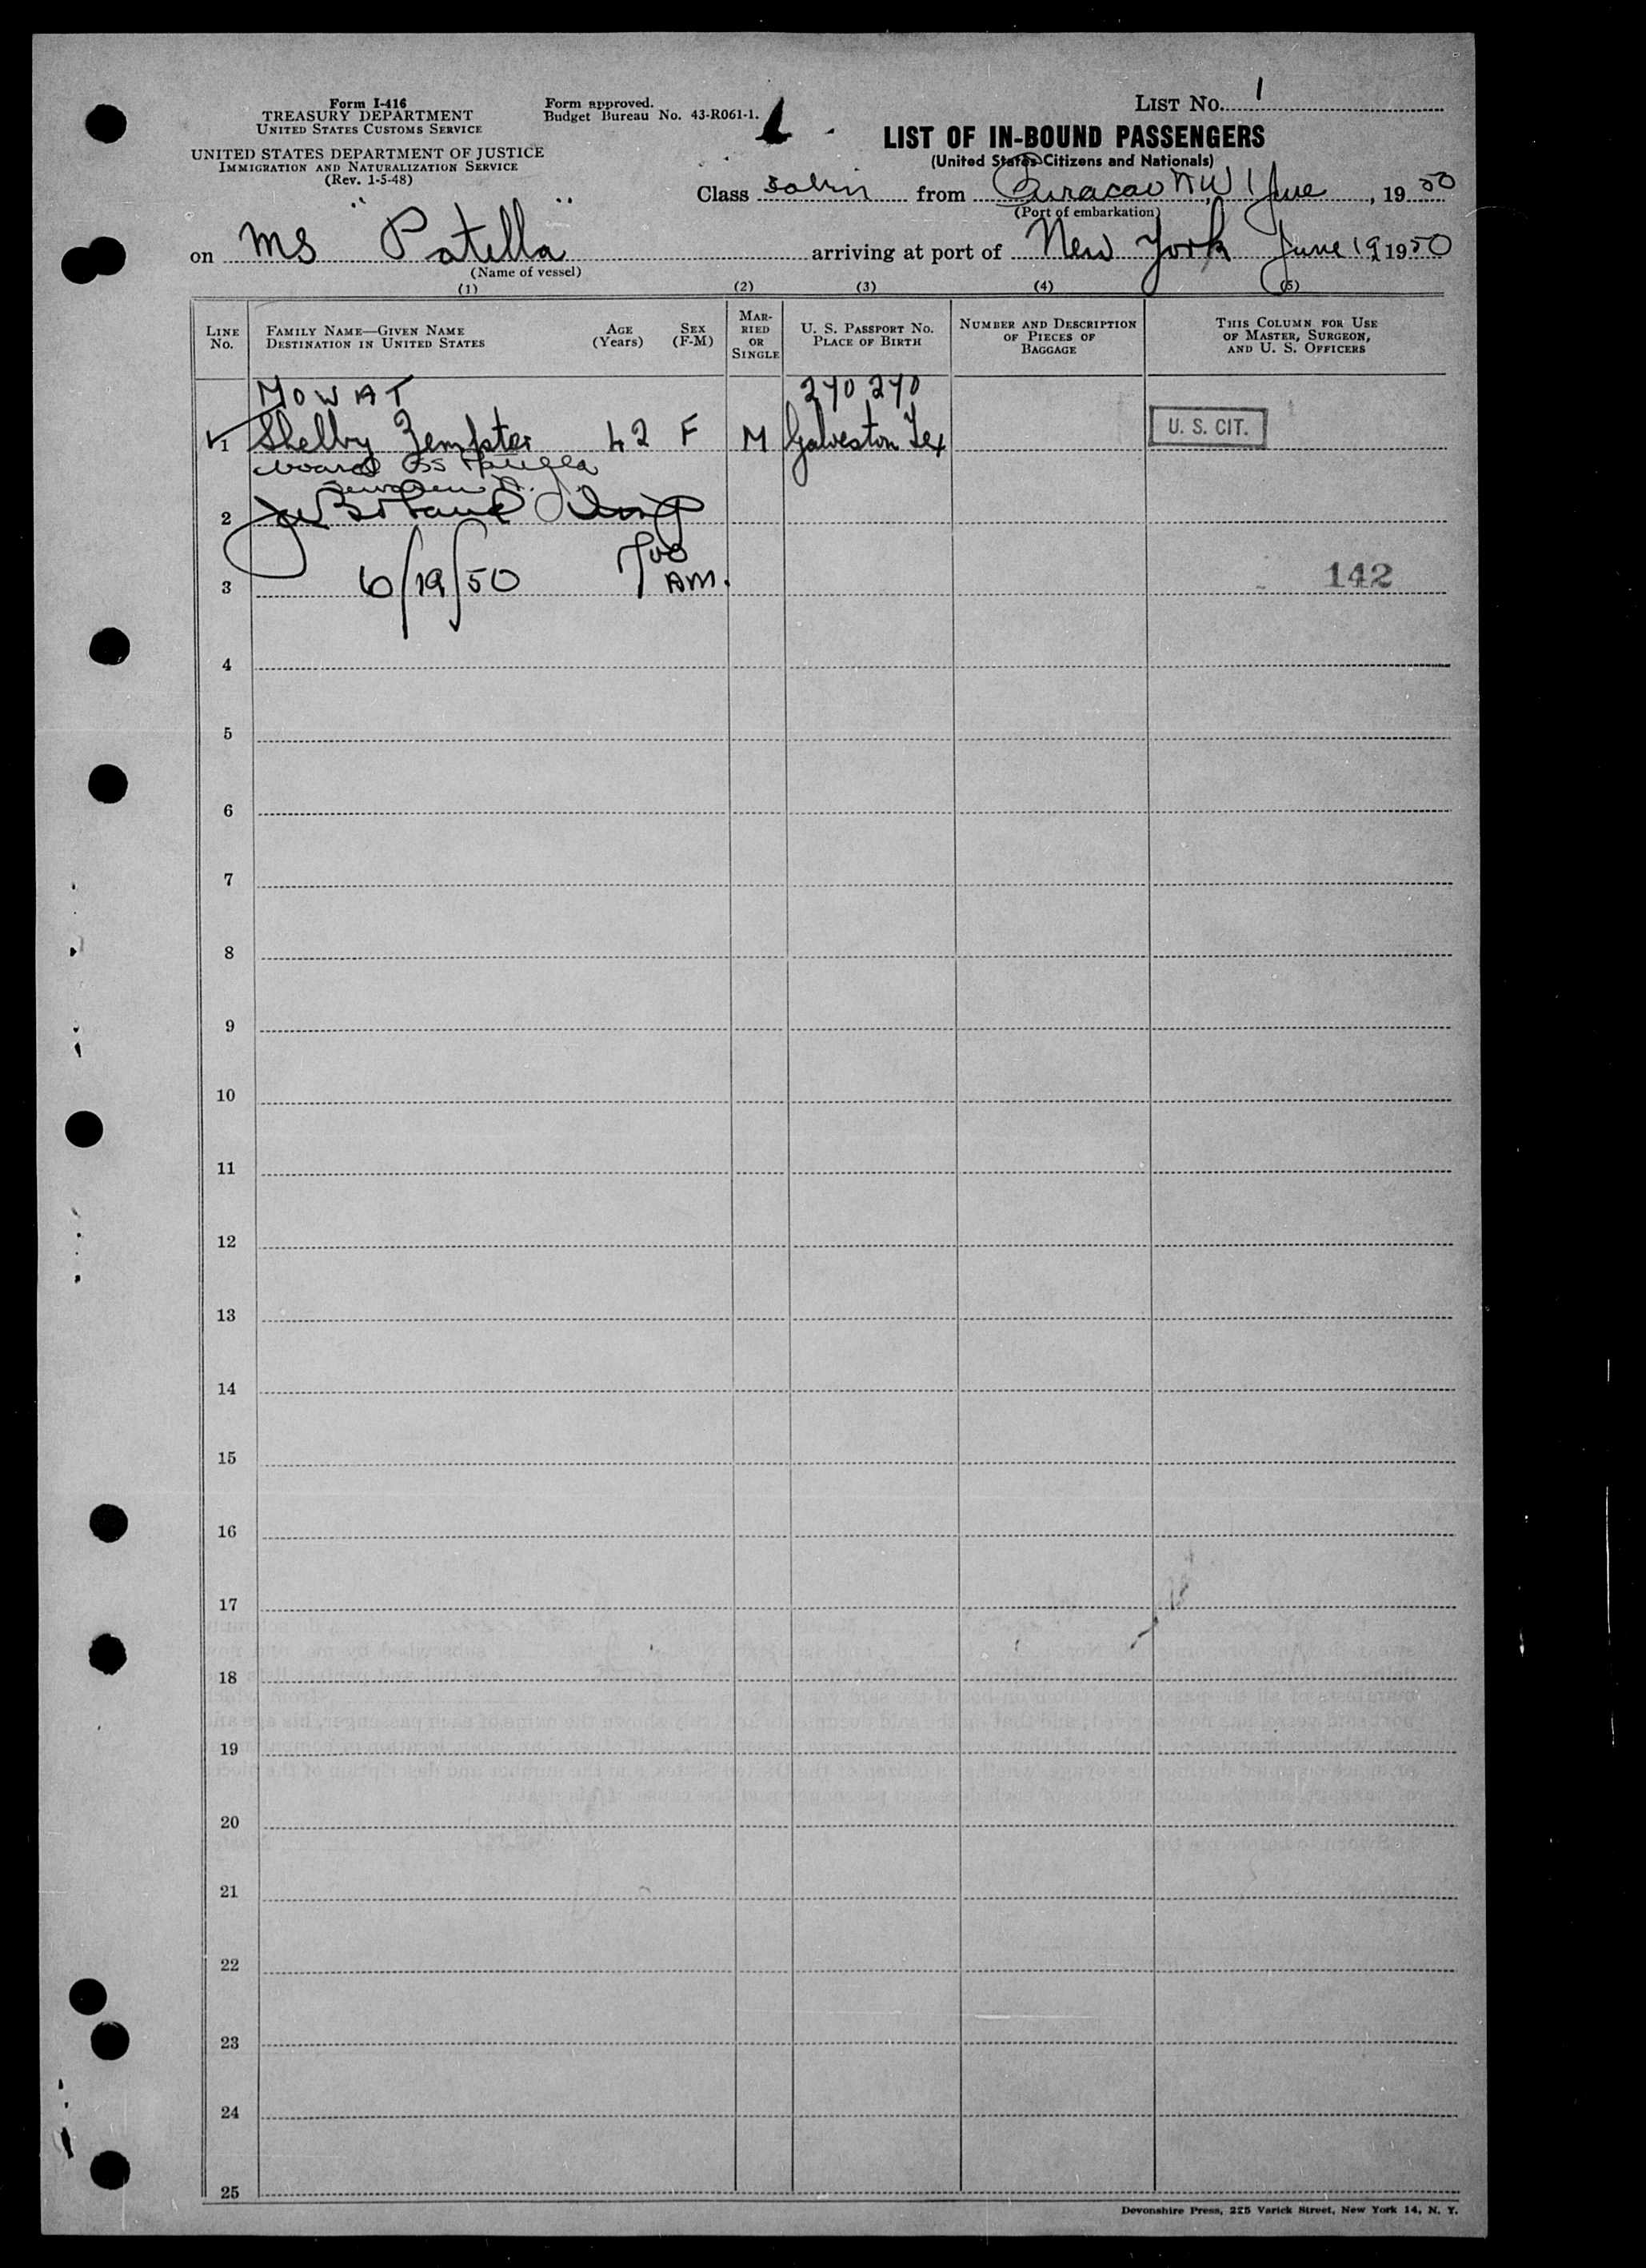 Form I-416
TREASURY DEPARTMENT
UNITED STATES CUSTOMS SERVICE
UNITED STATES DEPARTMENT OF JUSTICE
IMMIGRATION AND NATURALIZATION SERVICE
(Rev. 1-5-48)
Form approved.
Budget Bureau No. 43-R061-1.
LIST No. 1
LIST OF IN-BOUND PASSENGERS
(United States Citizens and Nationals)
Class from Curacao NWI June, 1950
(Port of embarkation)
on MS "Patella" arriving at port of New York June 19 1950
(Name of vessel)
(1) (2) (3) (4) (5)
LINE No. FAMILY NAME—GIVEN NAME DESTINATION IN UNITED STATES AGE (Years) SEX (F-M) MARRIED OR SINGLE U. S. PASSPORT No. PLACE OF BIRTH NUMBER AND DESCRIPTION OF PIECES OF BAGGAGE THIS COLUMN FOR USE OF MASTER, SURGEON, AND U. S. OFFICERS
MOWAT 270270
1 Shelby 42 F M Galveston Tex U. S. CIT.
board SS
2
3 6/19/50 7:00 AM. 142
4
5
6
7
8
9
10
11
12
13
14
15
16
17
18
19
20
21
22
23
24
25
Devonshire Press, 225 Varick Street, New York 14, N. Y.